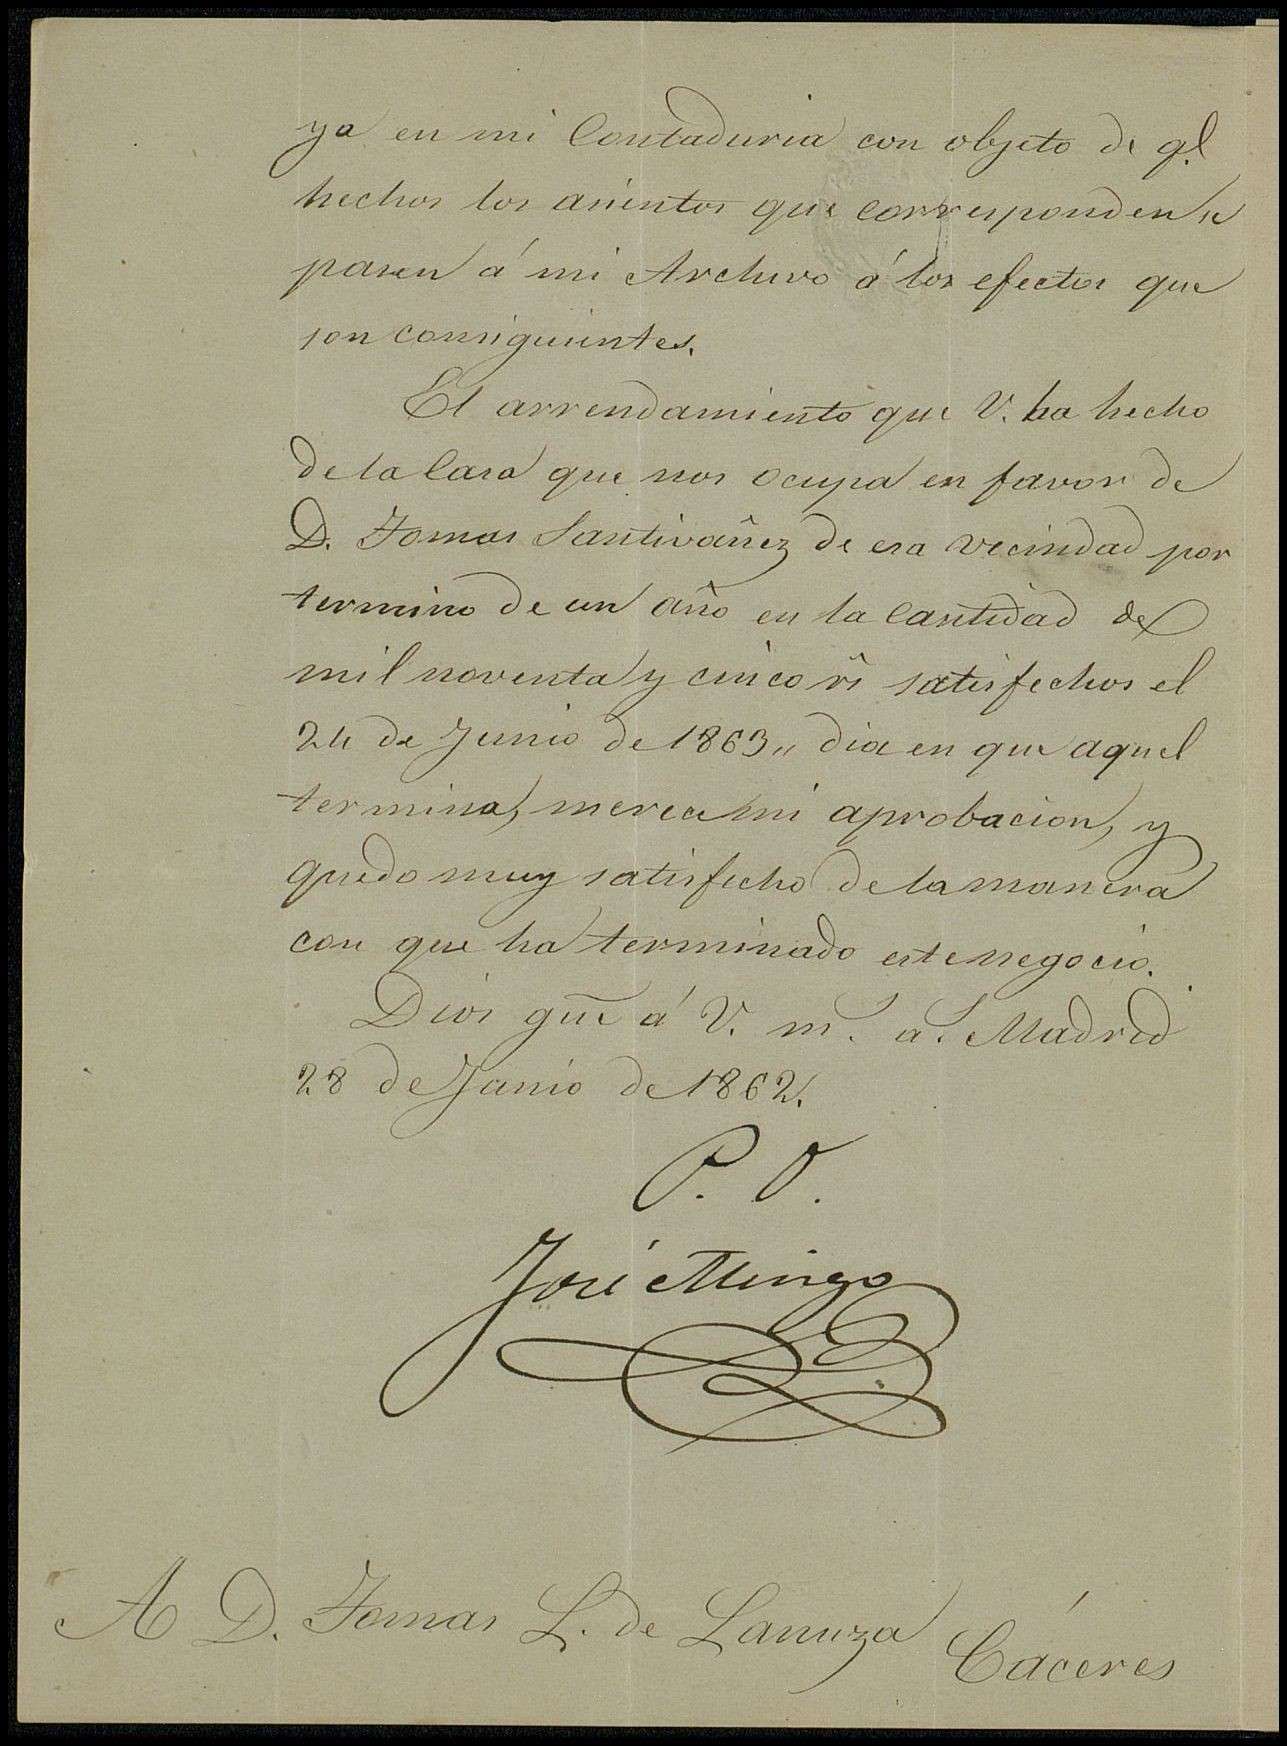 ya en mi Contaduria con objeto de q.e
hechos los asientos que corresponden, se
pasen á mi Archivo á los efectos que
son consiguientes.
El arrendamiento que V. ha hecho
de la Casa que nos ocupa en favor de
D. Tomas Santivañez de esa vecindad por
termino de un año en la Cantidad de
mil noventa y cinco rs satisfechos el
24 de Junio de 1863,, dia en que aquel
termina, merece mi aprobacion, y
quedo muy satisfecho de la manera
con que ha terminado este negocio.
Dios gue á V. m.s a.s Madrid
28 de Junio de 1862.
P. O.
José Mingo
A D. Tomas L. de Lanuza
Cáceres